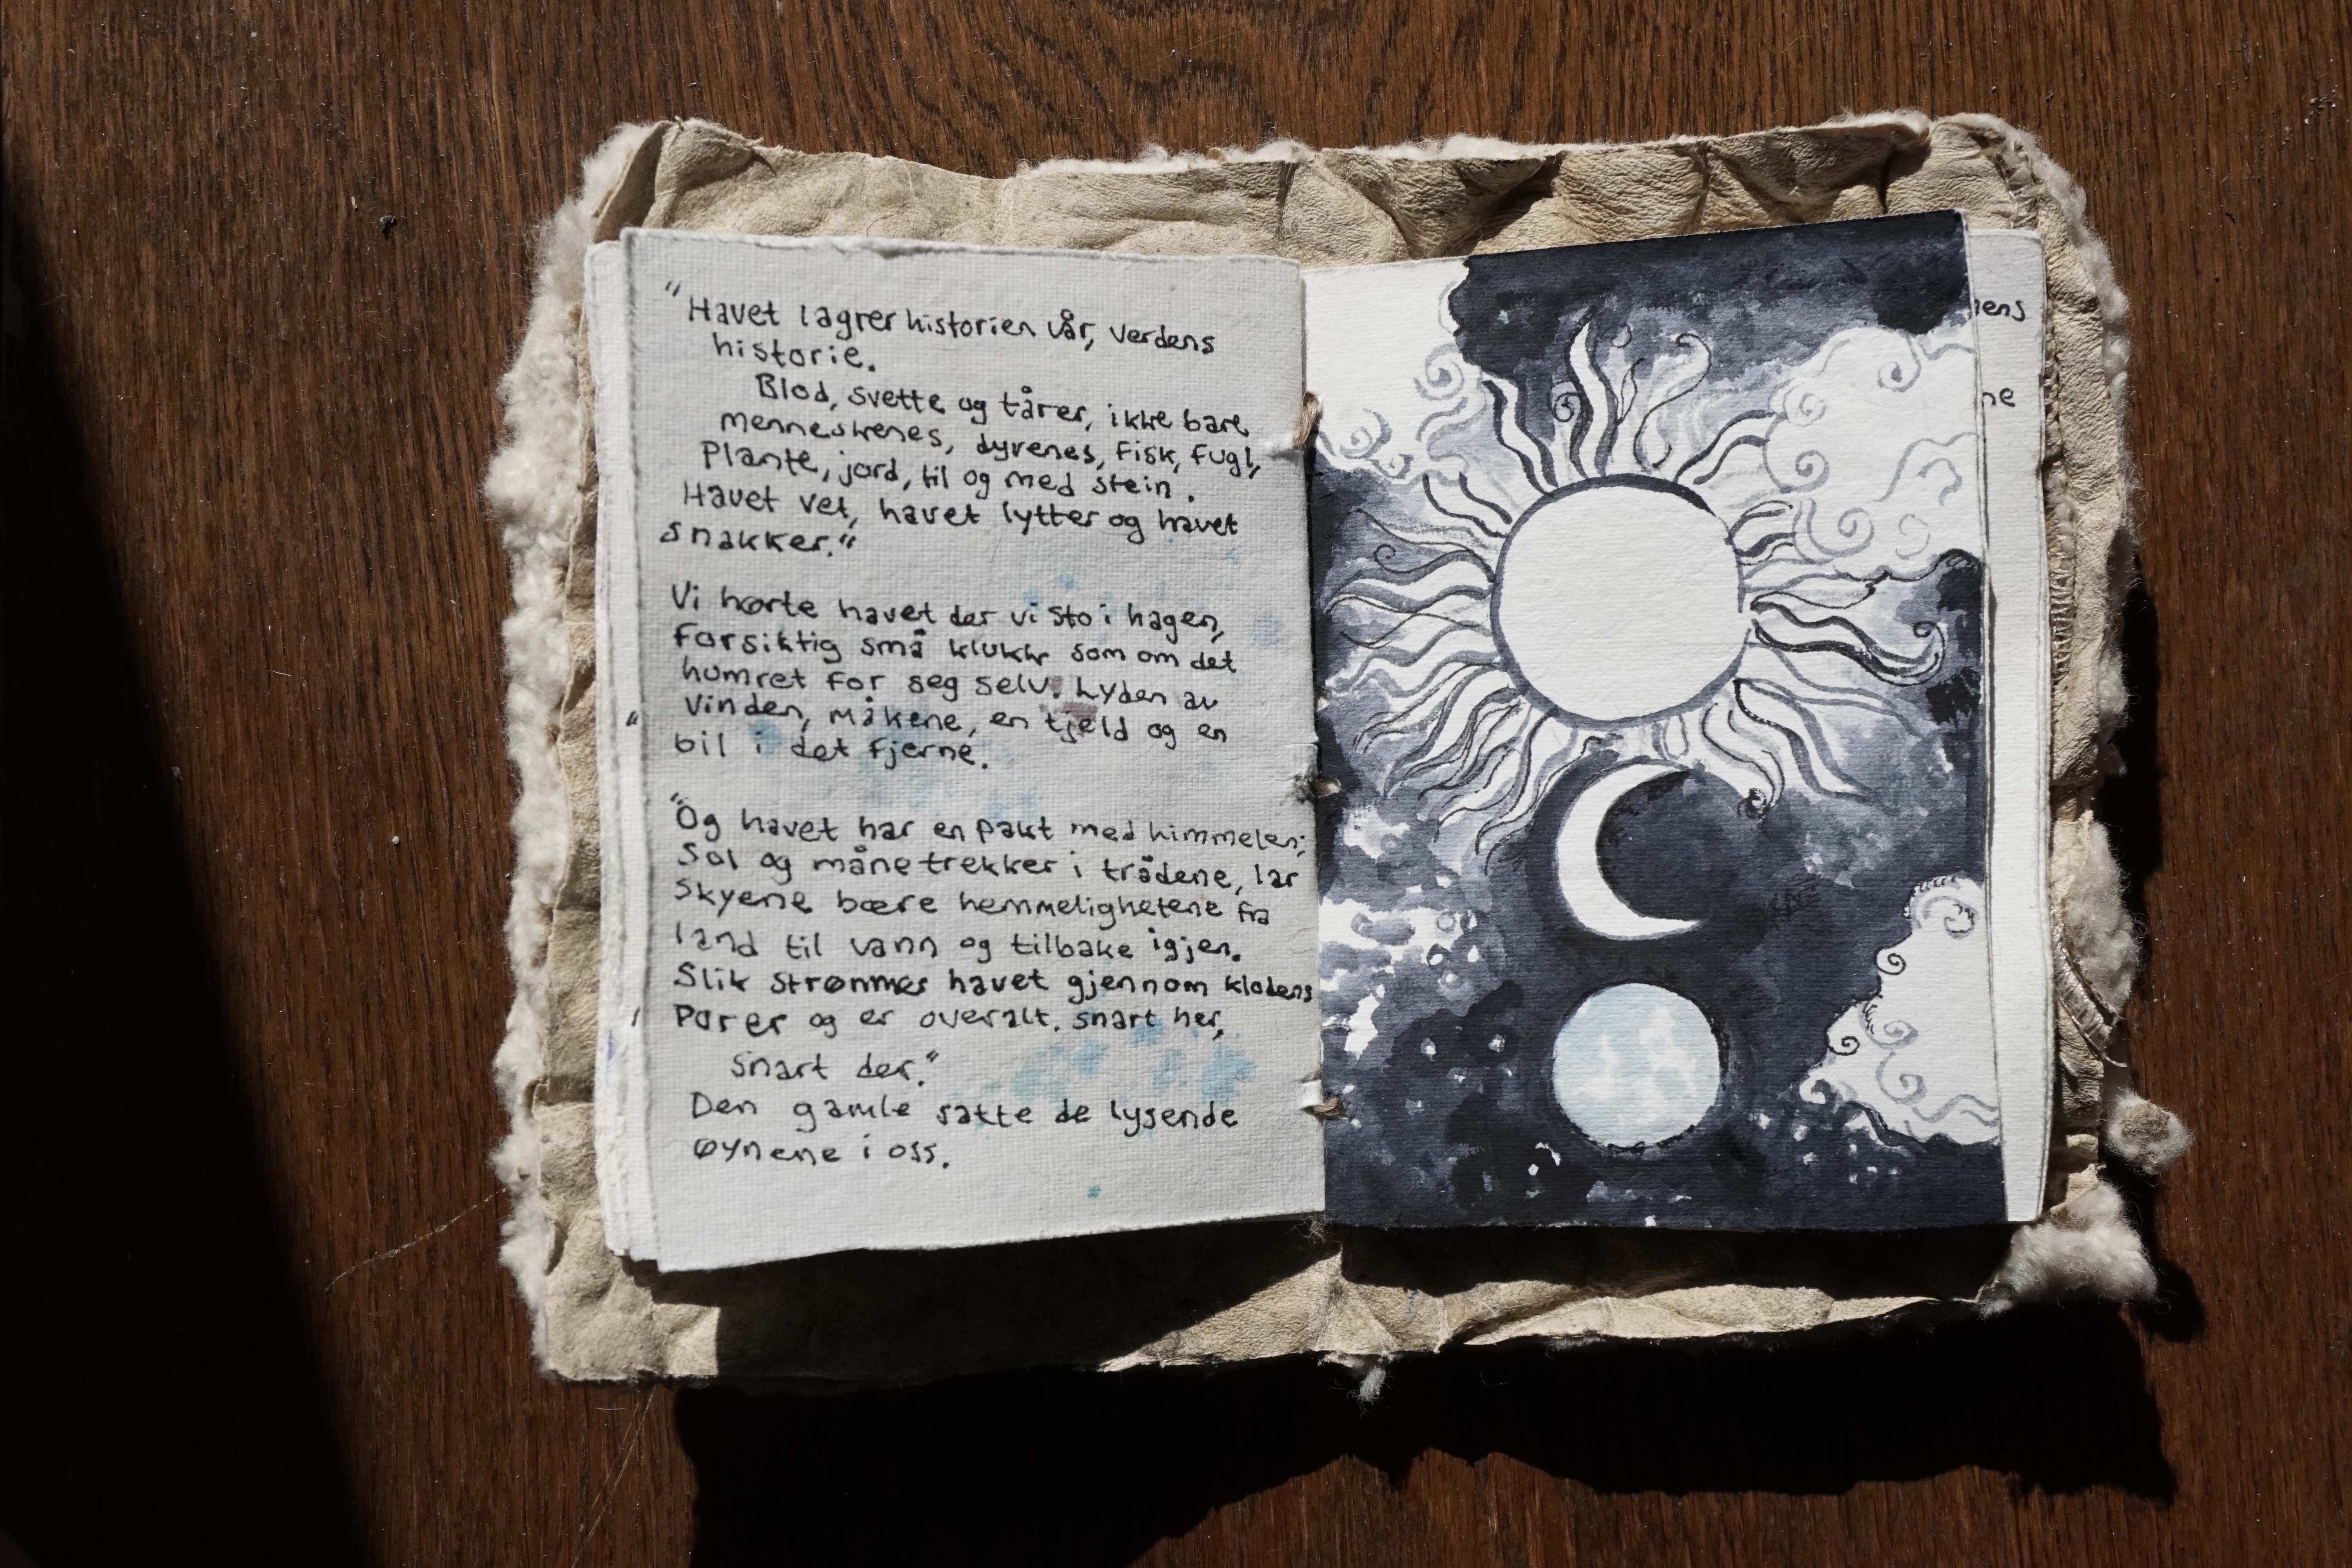 "Havet lagrer historien vår, verdens
historie.
Blod, svette og tårer, ikke bare
menneskenes, dyrenes, fisk, fugl,
plante, jord, til og med stein.
Havet vet, havet lytter og havet
snakker."
Vi hørte havet der vi sto i hagen,
forsiktig små klukk som om det
humret for seg selv. Lyden av
vinden, måkene, en tjeld og en
bil i det fjerne.
"Og havet har en pakt med himmelen;
Sol og måne trekker i trådene, lar
skyene bære hemmelighetene fra
land til vann og tilbake igjen.
Slik strømmes havet gjennom klodens
porer og er overalt. snart her,
snart der."
Den gamle satte de lysende
øynene i oss.
ens
ne